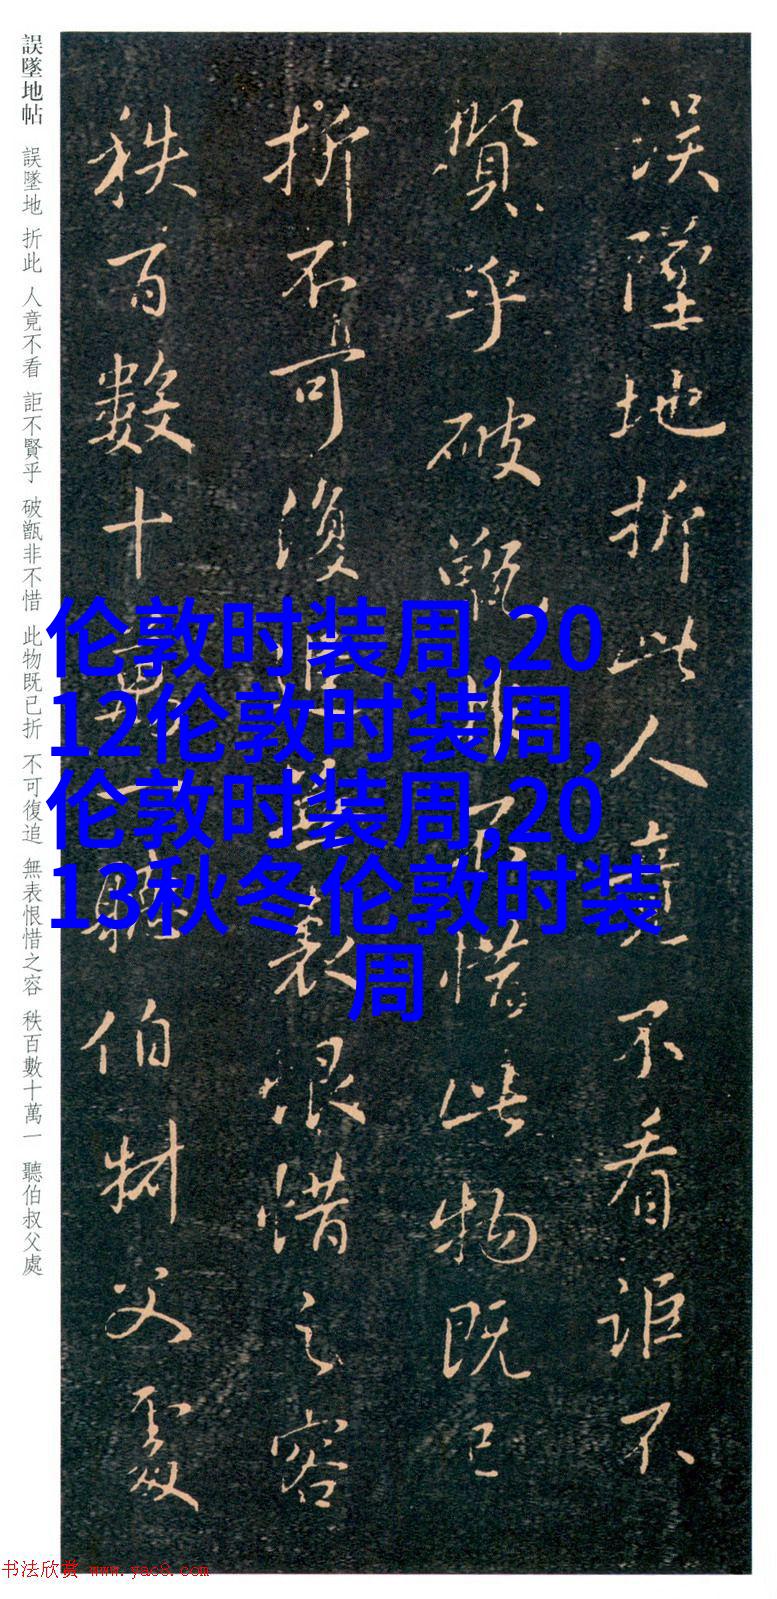 誤墜地折此人竟不看詎不
賢乎破甑非不惜此物既已
折不可復追無表恨惜之容
秩百數十萬一聽伯叔父處
誤墜地帖 誤墜地 折此 人竟不看 詎不賢乎 破甑非不惜 此物既已折 不可復追 無表恨惜之容 秩百數十萬一 聽伯叔父處
伦敦时装周,20
12伦敦时装周,
伦敦时装周,20
13秋冬伦敦时装
周
书法欣赏 www.yac8.com